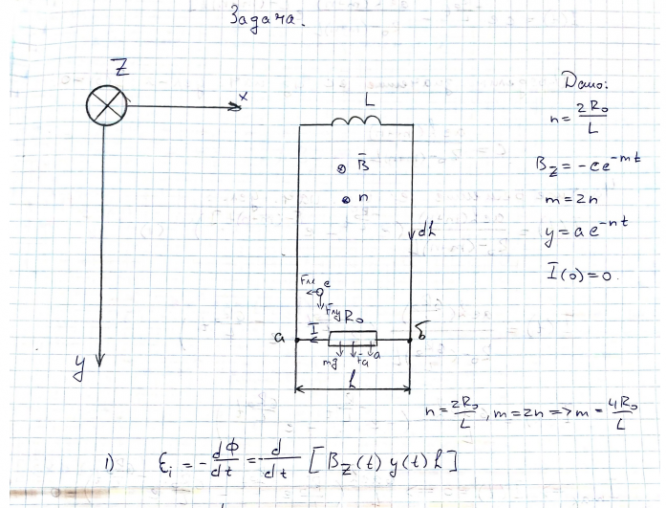 Задача.
Z
x
y
L
B̄
n
dL
Fлx e
Fлy R₀
a I б
mg Fa a
L
Дано:
n = 2R₀/L
B_z = -ce^{-mt}
m = 2n
y = ae^{-nt}
I(0) = 0.
n = 2R₀/L, m = 2n => m = 4R₀/L
1) ε_i = - dФ/dt = - d/dt [B_z(t) y(t) L]